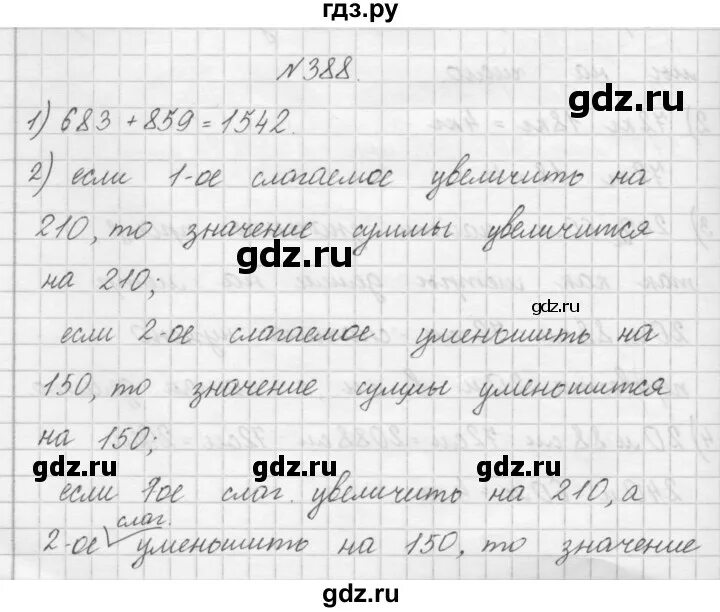 гдз.ру
№388.
gdz.ru
1) 683 + 859 = 1542.
2) если 1-ое слагаемое увеличить на
210, то значение суммы увеличится
gdz.ru
на 210;
gdz.ru
если 2-ое слагаемое уменьшить на
150, то значение суммы уменьшится
на 150;
gdz.ru gdz.ru gdz.ru
если 1ое слаг. увеличить на 210, а
слаг.
2-ое уменьшить на 150, то значение
gdz.ru